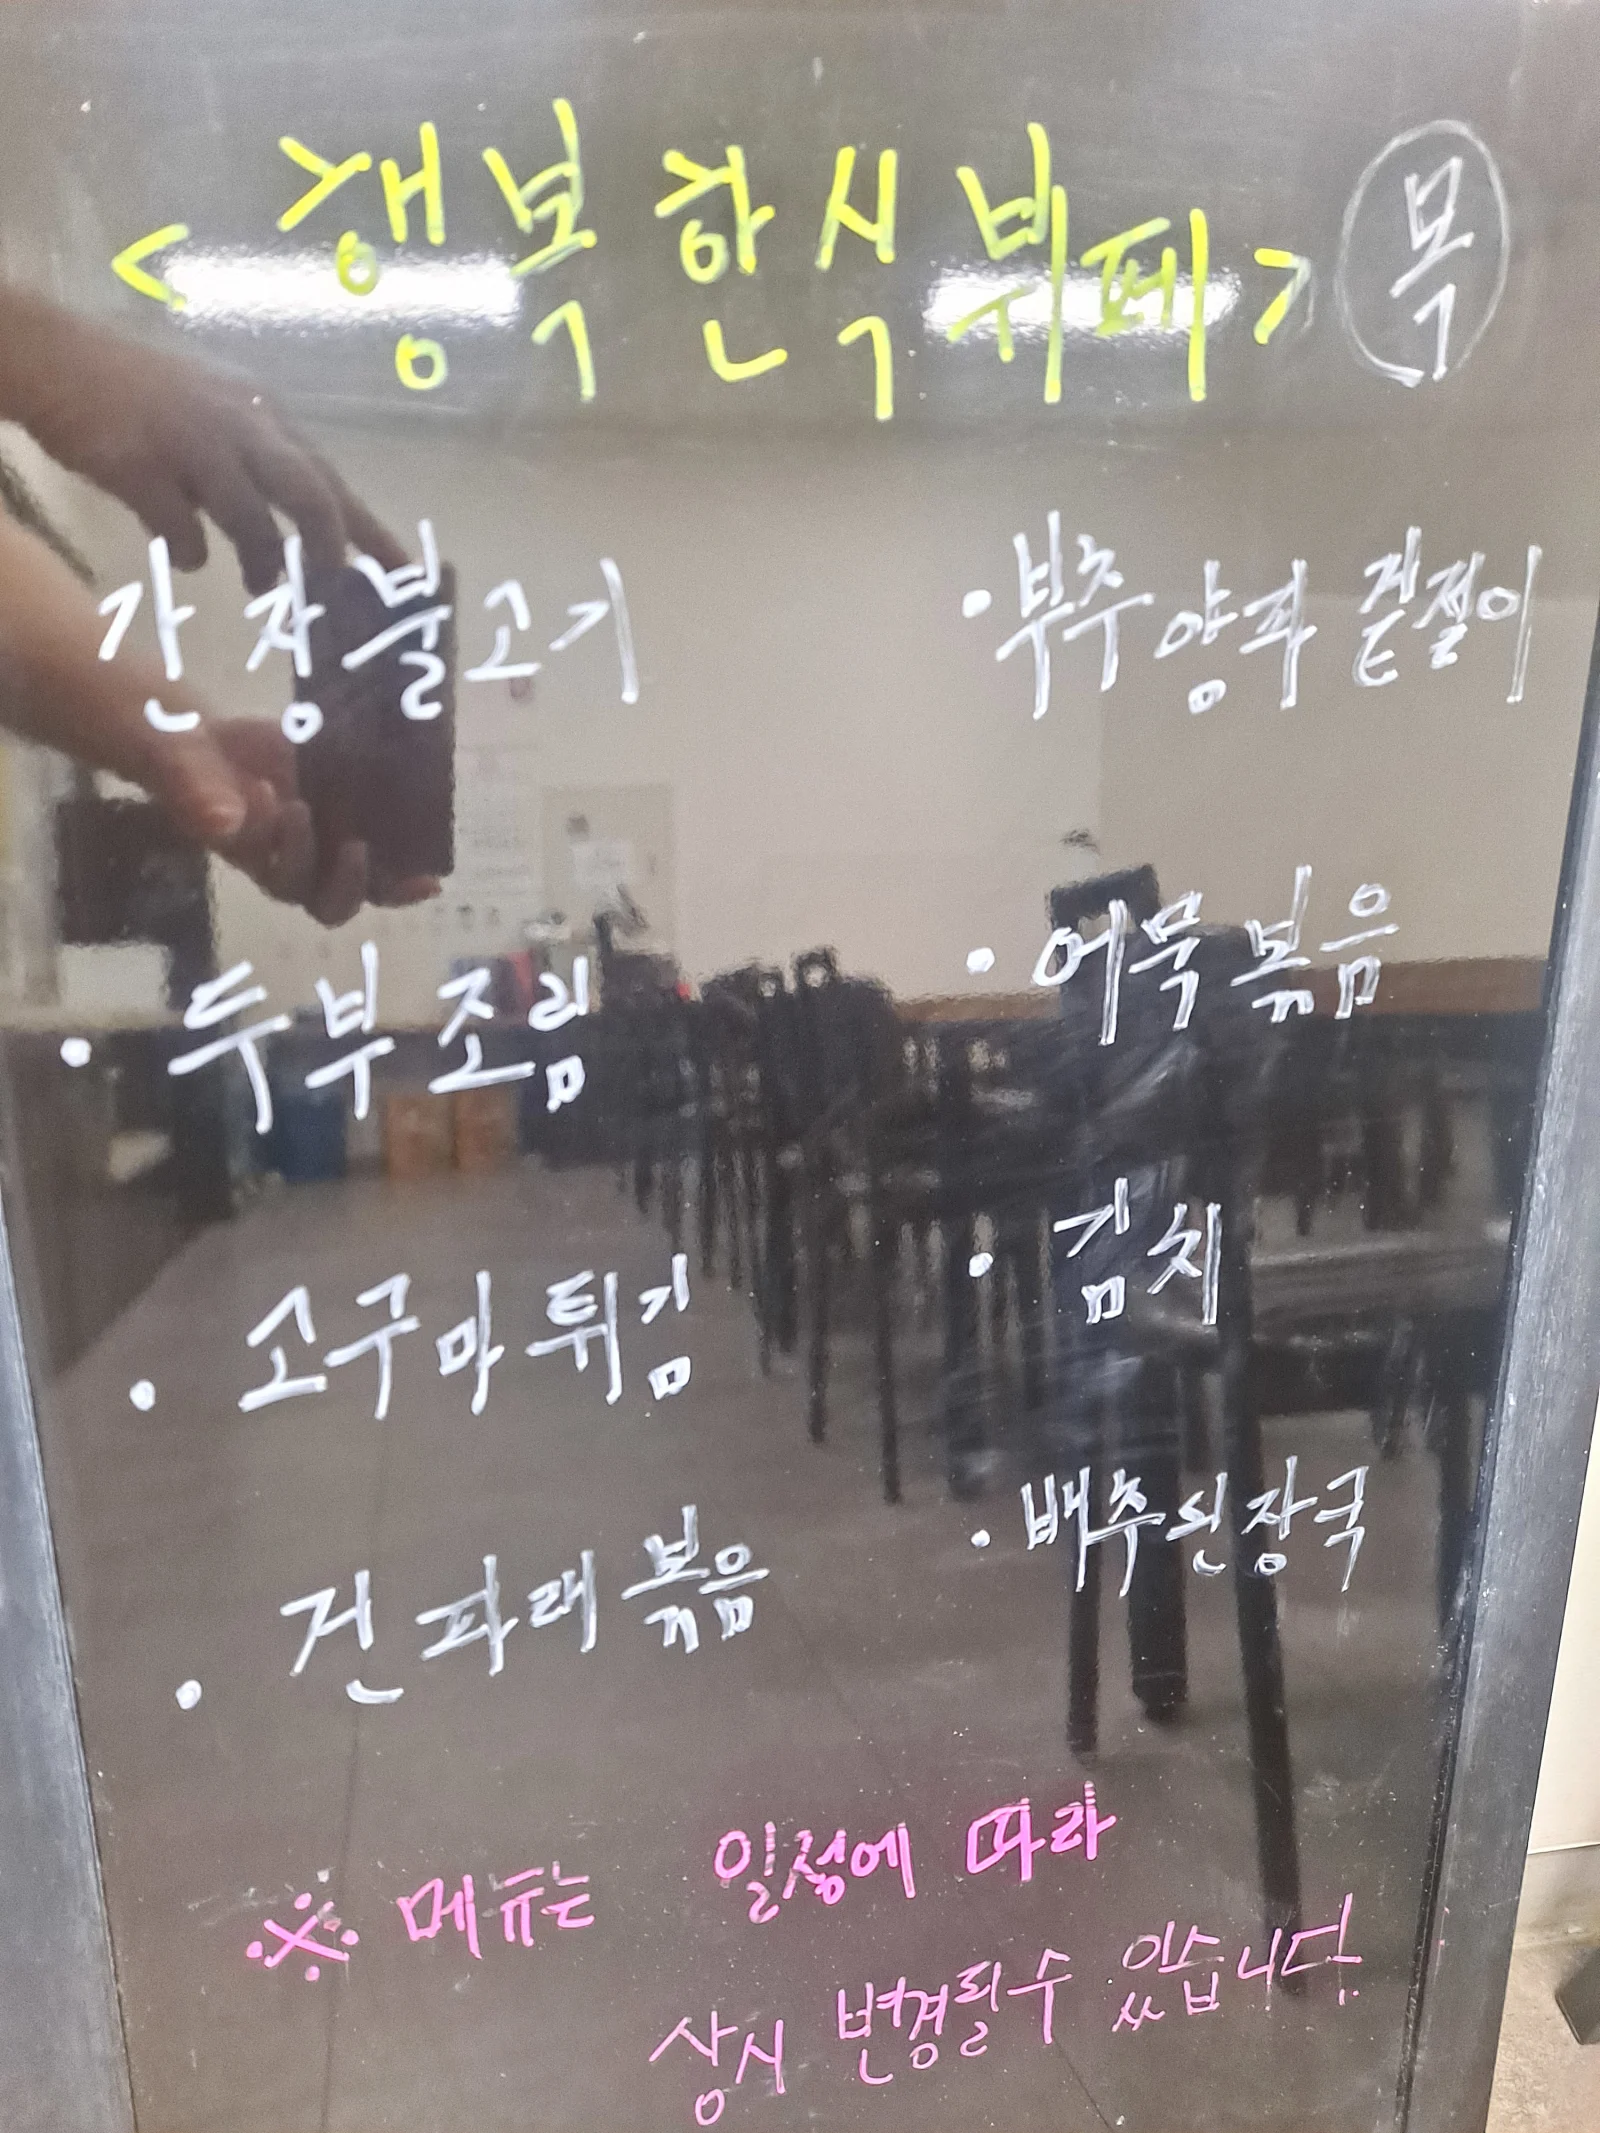 <행복한식뷔페> 목
간장불고기
· 두부조림
· 고구마튀김
· 건파래볶음
· 부추양파 겉절이
· 어묵볶음
· 김치
· 배추된장국
※ 메뉴는 일정에 따라
상시 변경될수 있습니다.